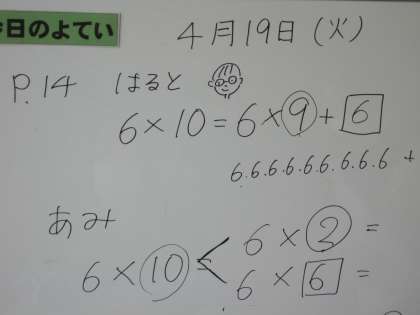 今日のよてい
4月19日(火)
P.14 はると
6×10=6×9+6
6.6.6.6.6.6.6.6.6 +
あみ
6×2=
6×10=<
6×6=